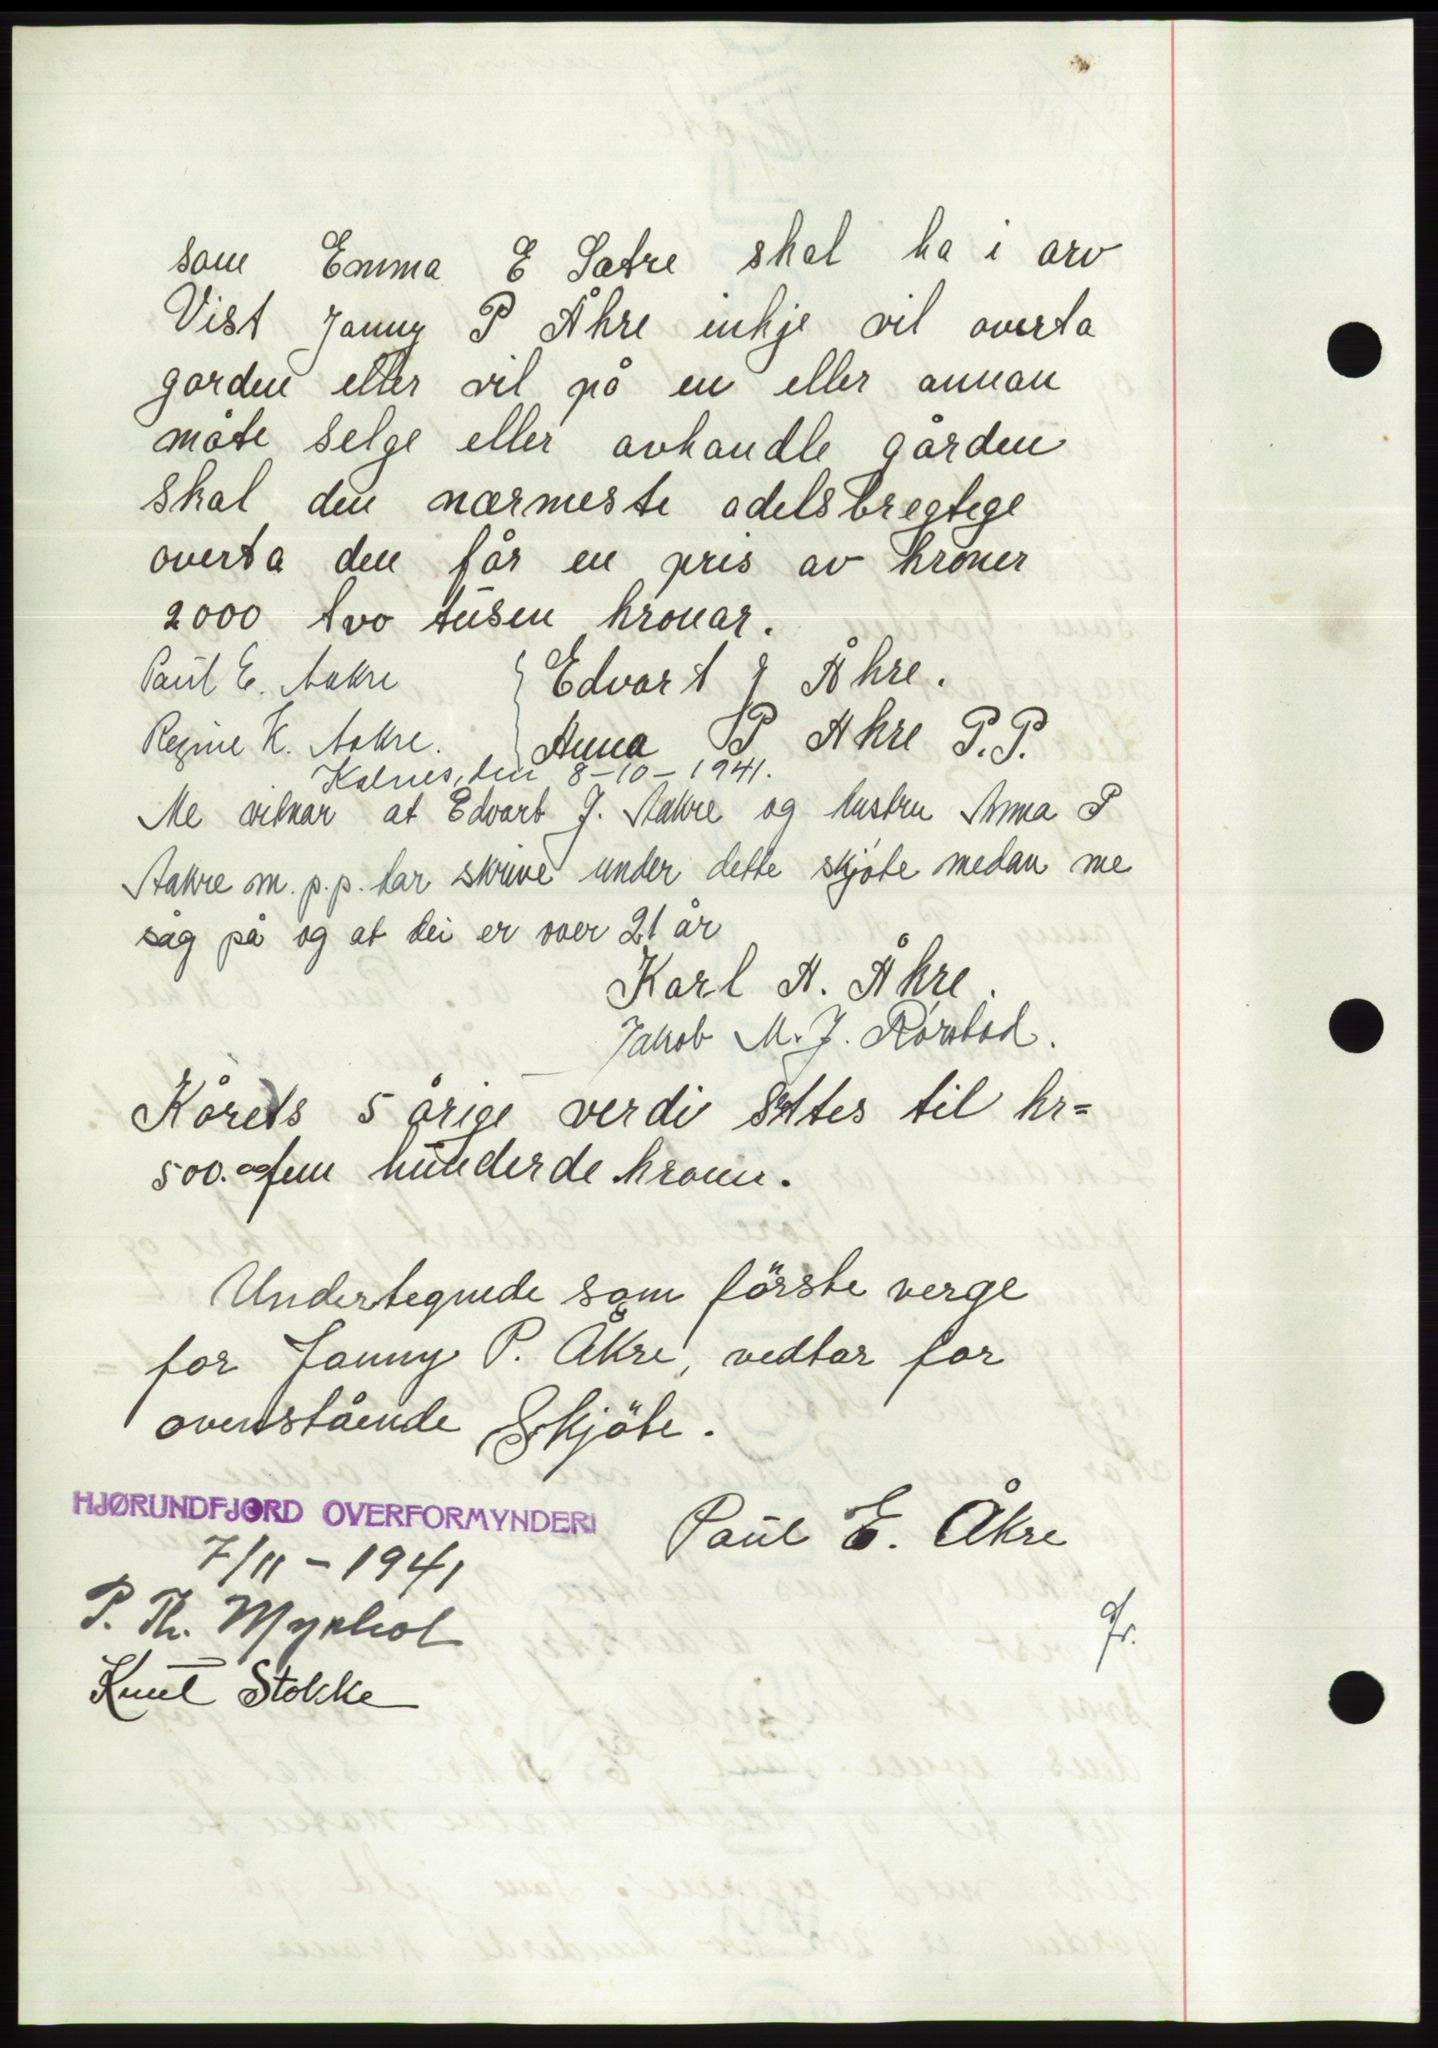 som Emma E Satre skal ha i arv
Vist Janny P Åkre inkje vil overta
garden eller vil på en eller annan
måte selge eller avhandle gården
skal den nærmeste odelsbregtege
overta den får en pris av kroner
2000 tvo tusen kronar.
Paul E. Aakre } Edvart J Åkre.
Regine K. Aakre. Anna P Åkre P.P.
Kalnes, den 8-10-1941.
Me vitnar at Edvart J. Aakre og hustru Anna P
Aakre m.p.p. har skrive under dette skjøte medan me
såg på og at dei er over 21 år
Karl A. Åkre.
Jakob M. J. Rørstad.
Kårets 5 årige verdi settes til kr=
500.00 fem hunderde kroner.
Undertegnede som förste verge
for Janny P. Åkre, vedtar for
ovenstående Skjöte.
HJØRUNDFJORD OVERFORMYNDERI
Paul E. Åkre
7/11-1941
P. Th. Myrhol
Knut Stokke